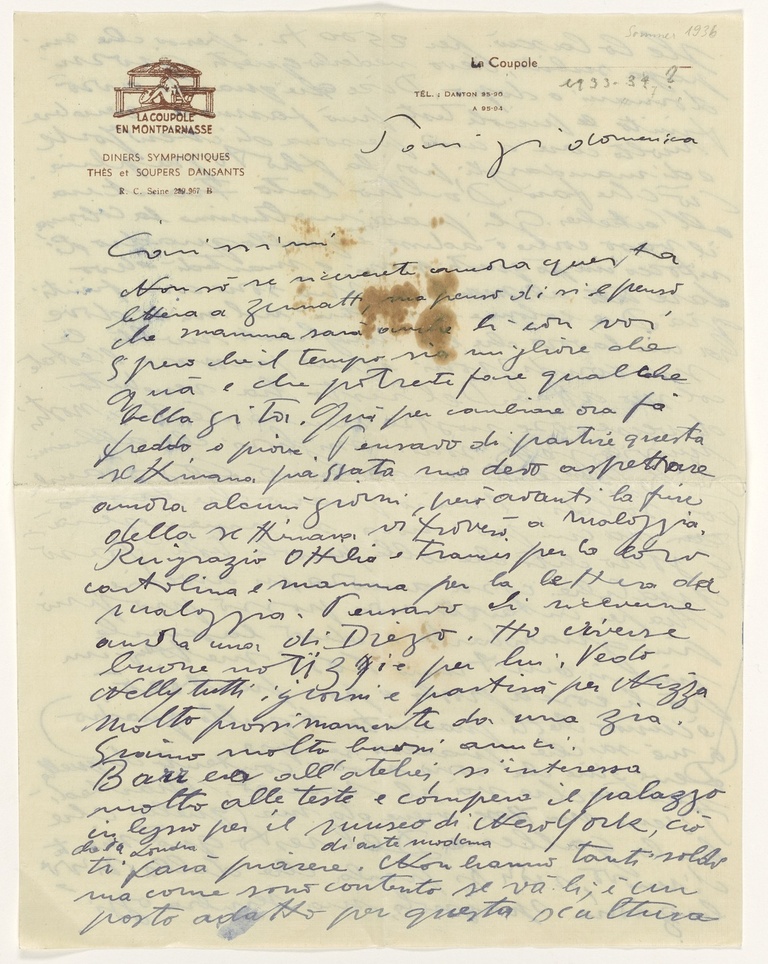 Sommer 1936
La Coupole
1933-34?
TÉL. : DANTON 95-90
A 95-94
LA COUPOLE
EN MONTPARNASSE
DINERS SYMPHONIQUES
THÉS et SOUPERS DANSANTS
R. C. Seine 239.967 B
Parigi domenica
Carissimi
Non sò se riceverete ancora questa
lettera a Zermatt, ma penso di si e penso
che mamma sarà anche li con voi
Spero che il tempo sia migliore che
quà e che potrete fare qualche
bella gita. Quì per cambiare ora fà
freddo o piove. Pensavo di partire questa
settimana passata ma devo aspettare
ancora alcuni giorni, però avanti la fine
della settimana vi troverò a Maloggia.
Ringrazio Ottilia e Francis per la loro
cartolina e mamma per la lettera da
Maloggia. Pensavo di riceverne
ancora una di Diego. Ho diverse
buone notizzie per lui. Vedo
Nelly tutti i giorni e partirà per Nizza
molto prossimamente da una zia.
Siamo molto buoni amici.
Barr era all'atelier, si interessa
molto alle teste e compera il palazzo
in legno per il museo di New York, ciò
che da Londra di arte moderna
ti farà piacere. Non hanno tanti soldi
ma come sono contento se và li, è un
posto adatto per questa scultura